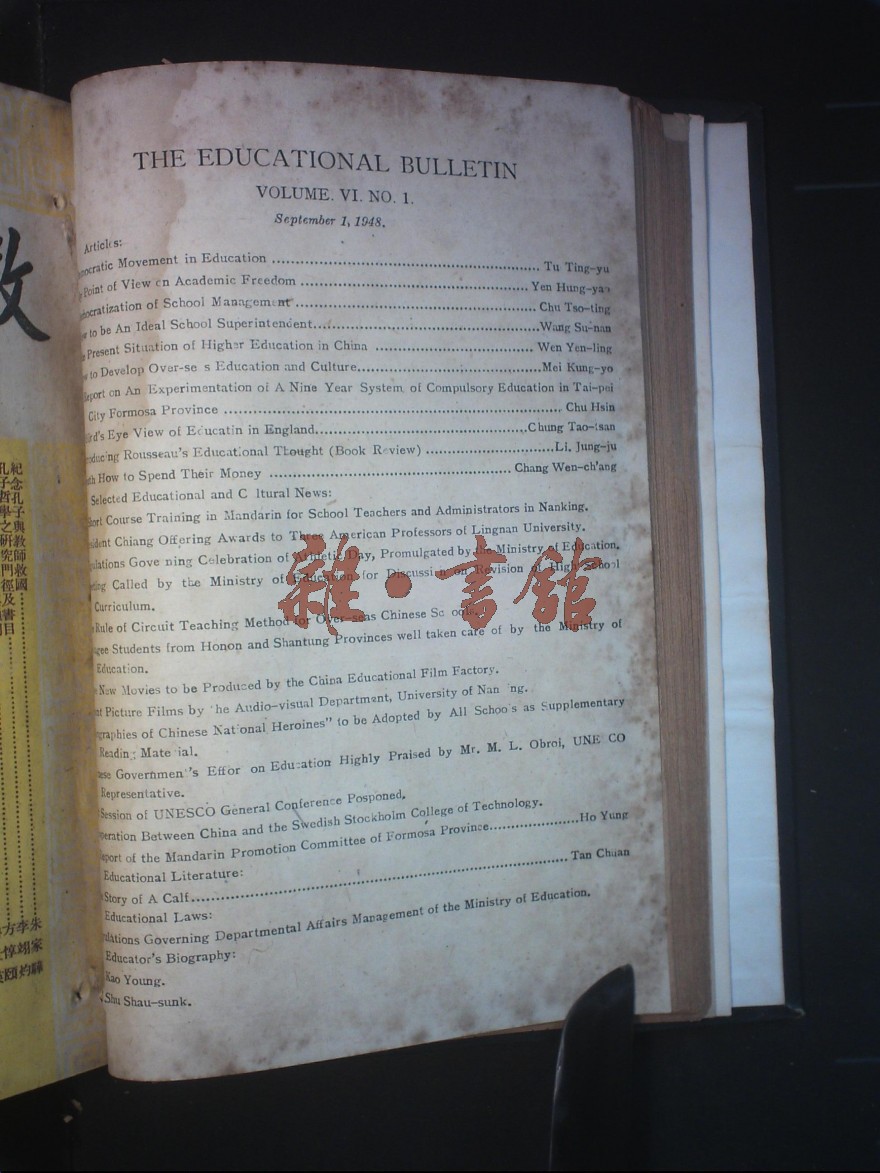 THE EDUCATIONAL BULLETIN
VOLUME. VI. NO. 1.
September 1, 1948.
Articles:
Movement in Education Tu Ting-yu
Point of View on Academic Freedom Yen Hung-yao
of School Management Chu Tso-ting
to be An Ideal School Superintendent Wang Su-nan
Present Situation of Higher Education in China Wen Yen-ling
to Develop Over-se s Education and Culture Mei Kung-yo
on An Experimentation of A Nine Year System of Compulsory Education in Tai-pei
City Formosa Province Chu Hsin
Eye View of Educatin in England Chung Tao-tsan
Rousseau's Educational Thought (Book Review) Li. Jung-ju
How to Spend Their Money Chang Wen-ch'ang
Selected Educational and C ltural News:
Course Training in Mandarin for School Teachers and Administrators in Nanking.
Chiang Offering Awards to Three American Professors of Lingnan University.
Gove ning Celebration of Athletic Day, Promulgated by the Ministry of Education.
Called by the Ministry of Education for Discussion on Revision of High School
Curriculum.
Rule of Circuit Teaching Method for Over-seas Chinese Sc ools.
Students from Honon and Shantung Provinces well taken care of by the Ministry of
Education.
New Movies to be Produced by the China Educational Film Factory.
Picture Films by he Audio-visual Department, University of Nan ng.
of Chinese National Heroines" to be Adopted by All Schoo s as Supplementary
Reading Mate ial.
Governmen 's Effor on Education Highly Praised by Mr. M. L. Obroi, UNE CO
Representative.
Session of UNESCO General Conference Posponed.
Between China and the Swedish Stockholm College of Technology.
of the Mandarin Promotion Committee of Formosa Province Ho Yung
Educational Literature:
Story of A Calf Tan Chuan
Educational Laws:
Governing Departmental Affairs Management of the Ministry of Education.
Educator's Biography:
Kao Young.
Shu Shau-sunk.
雜·書館
紀念孔子與教師救國
孔子哲學之研究門徑及書目
朱家驊
李
方